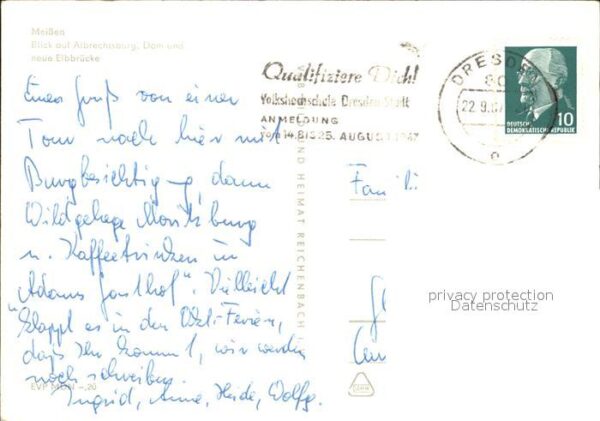 Meißen
Blick auf Albrechtsburg, Dom und
neue Elbbrücke
Qualifiziere Dich!
Volkshochschule Dresden Stadt
ANMELDUNG
vom 14.8. BIS 25. AUGUST 1967
DRESDEN
22.9.67
10
DEUTSCHE
DEMOKRATISCHE REPUBLIK
Einen Gruß von einer
Tour nach hier mit
Burgbesichtigung, dann
Wildgehege Moritzburg
u. Kaffeetrinken in
"Adams Gasthof". Vielleicht
klappt es in den Okt.-Ferien,
daß Ihr kommt, wir werden
noch schreiben.
Ingrid, Anne, Heide, Wolfg.
Famili
UND HEIMAT REICHENBACH
EVP MDN -,20
privacy protection
Datenschutz